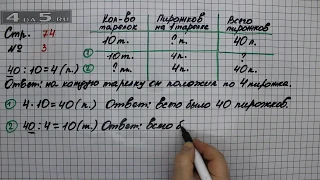 4 да 5.ru
Стр. 74
№ 3
Кол-во тарелок | Пирожков на 1 тарелке | Всего пирожков
10 т. | ? п. | 40 п.
① 10 т. | 4 п. | ? п.
② ? т. | 4 п. | 40 п.
40 : 10 = 4 (п.)
Ответ: на каждую тарелку он положил по 4 пирожка.
① 4 · 10 = 40 (п.) Ответ: всего было 40 пирожков.
② 40 : 4 = 10 (т.) Ответ: всего б